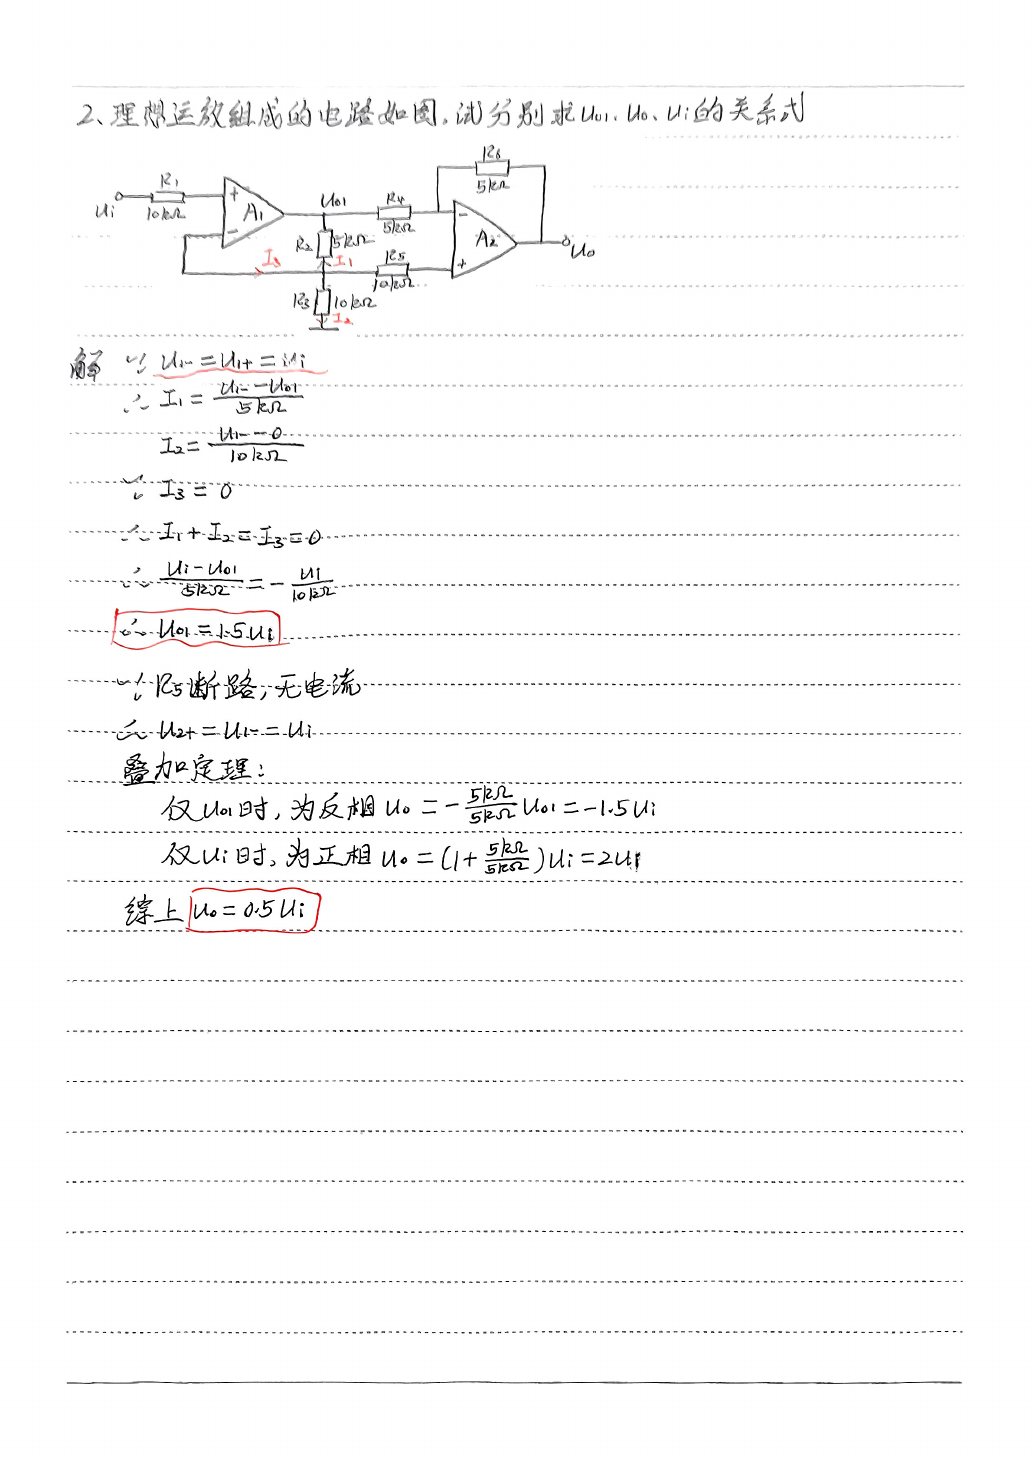 2、理想运放组成的电路如图,试分别求u₀₁、u₀、ui的关系式
R₆
5kΩ
R₁
ui
10kΩ
+
A₁
-
U₀₁
R₄
5kΩ
R₂
5kΩ
-
A₂
+
U₀
I₃
I₁
R₅
10kΩ
R₃
10kΩ
I₂
解 ∵ U₁₋ = U₁₊ = Ui
∴ I₁ = (U₁₋ - U₀₁)/5kΩ
I₂ = (U₁₋ - 0)/10kΩ
∵ I₃ = 0
∴ I₁ + I₂ = I₃ = 0
∴ (Ui - U₀₁)/5kΩ = - Ui/10kΩ
∴ U₀₁ = 1.5Ui
∵ R₅断路,无电流
∴ U₂₊ = U₁₋ = Ui
叠加定理:
仅U₀₁时,为反相U₀ = - 5kΩ/5kΩ U₀₁ = -1.5Ui
仅Ui时,为正相U₀ = (1 + 5kΩ/5kΩ)Ui = 2Ui
综上 U₀ = 0.5Ui